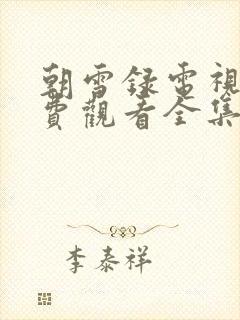 朝雪録電視
費觀看全集
李泰祥